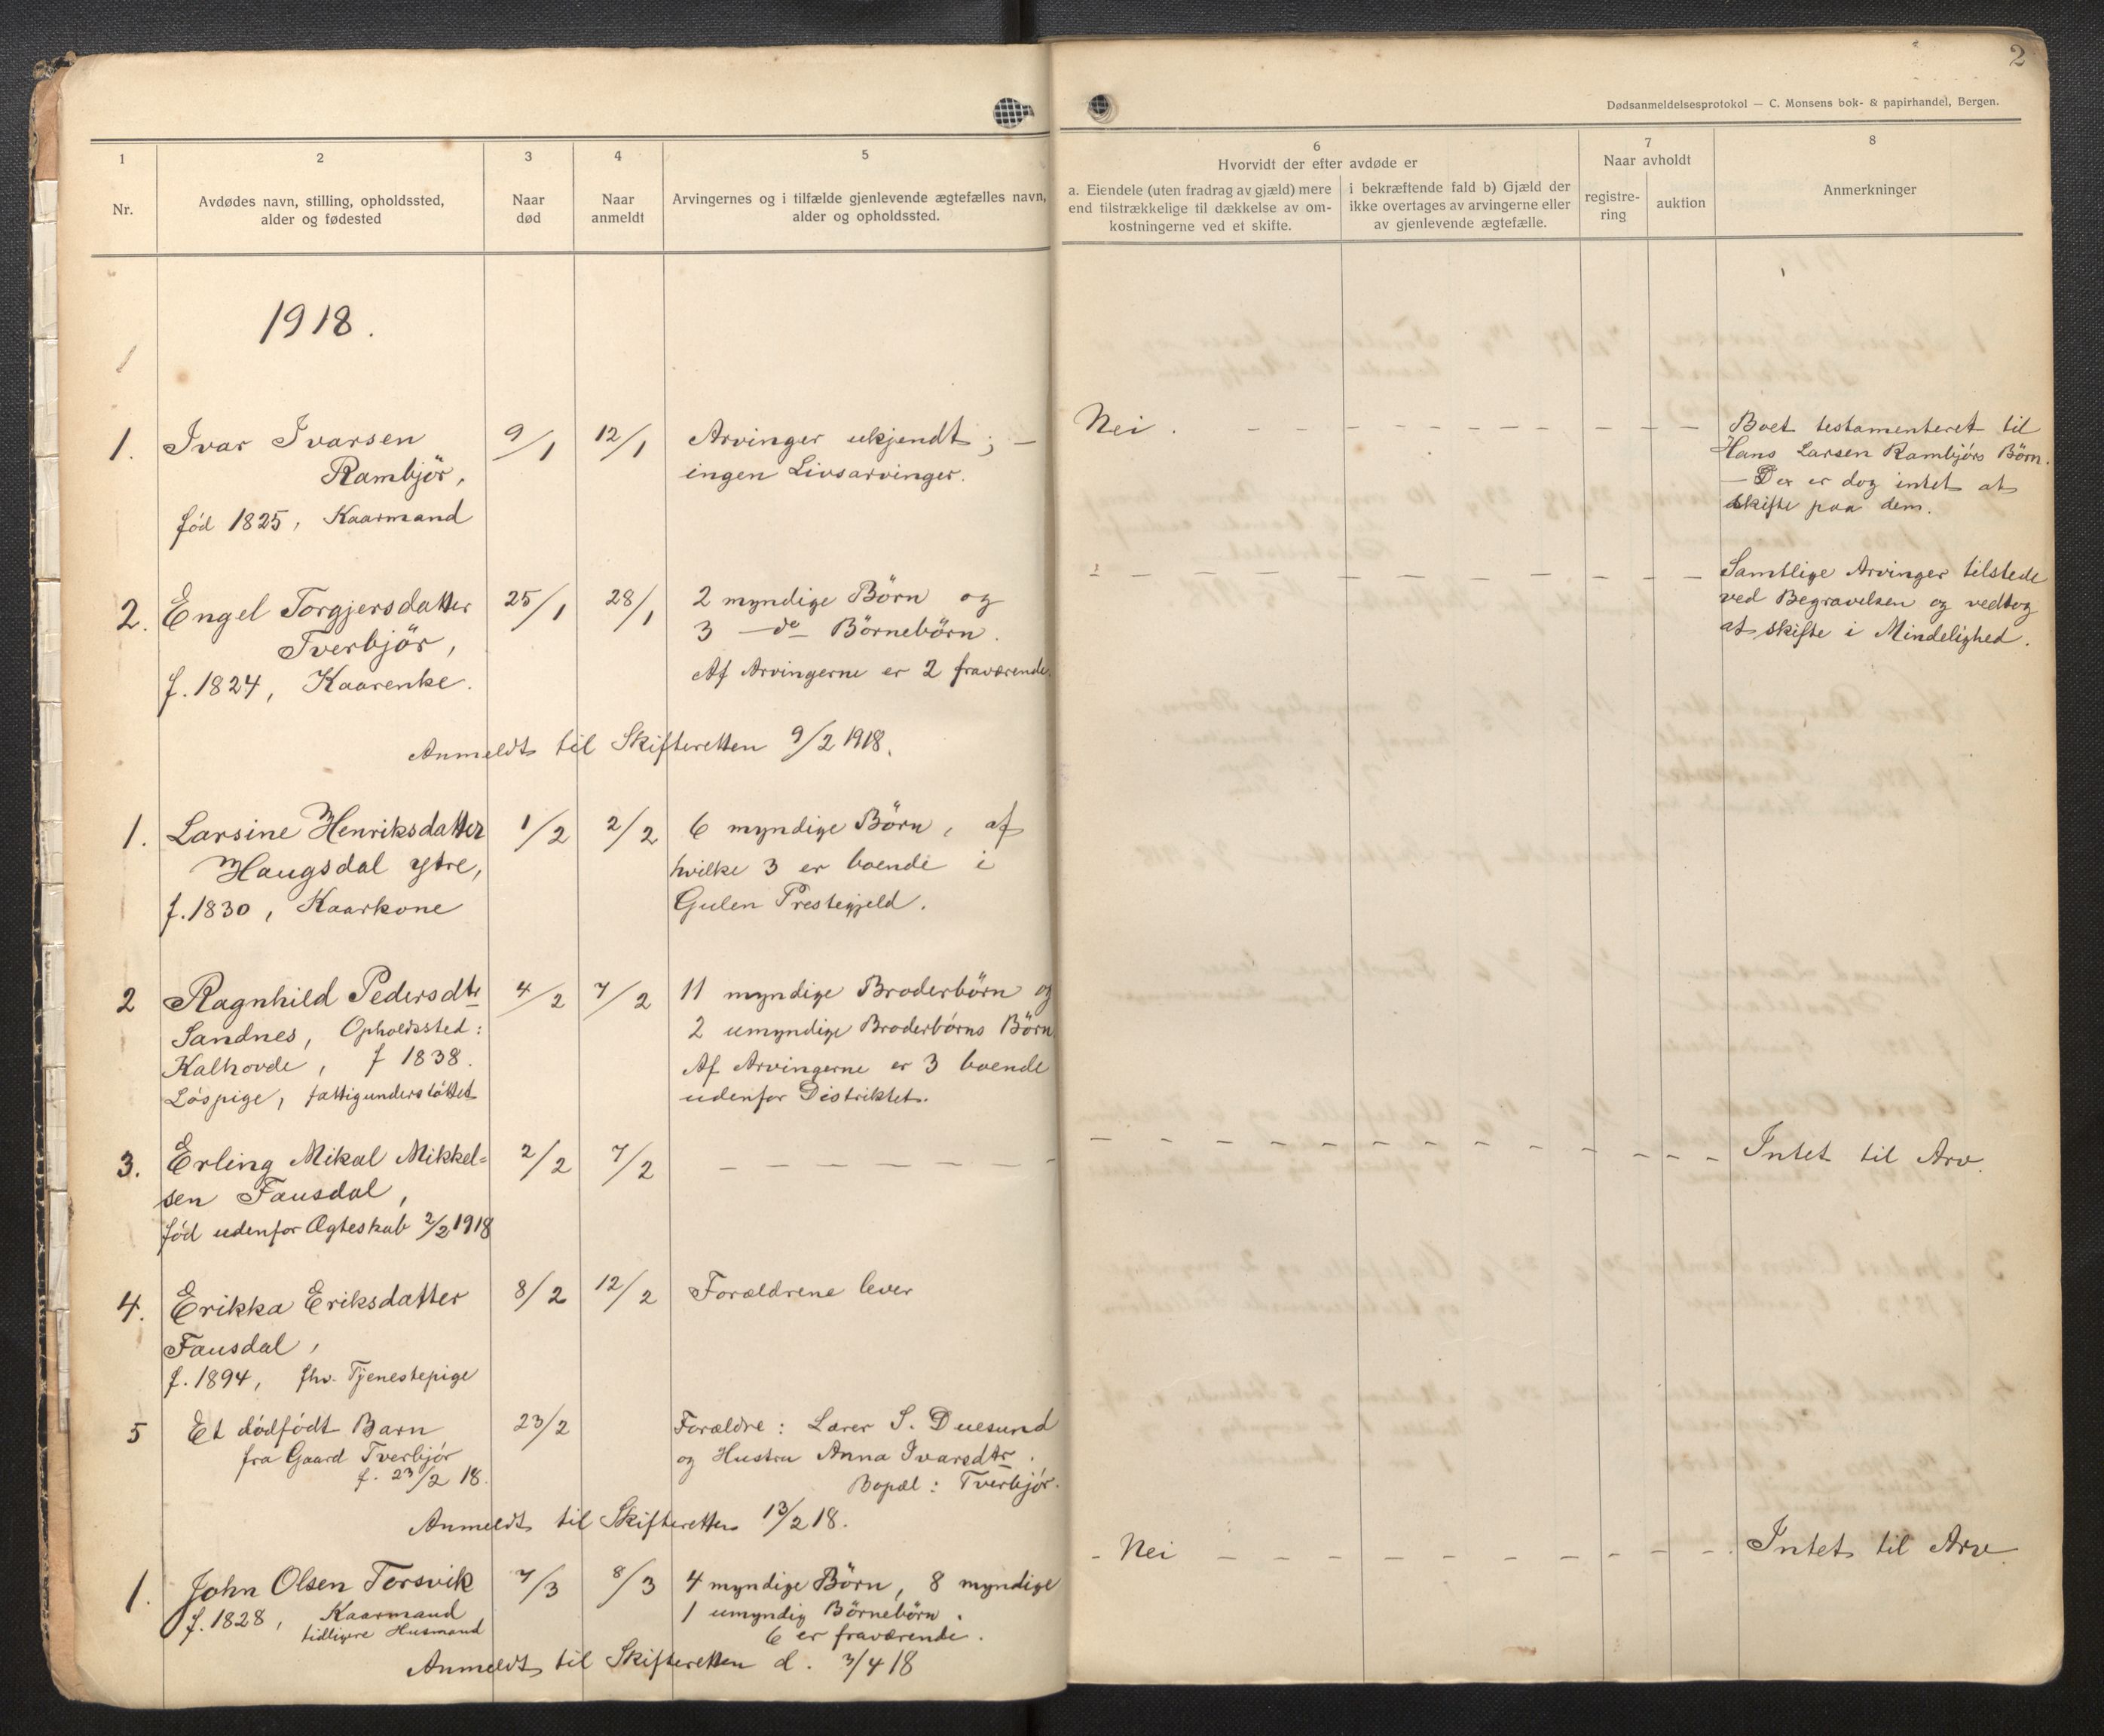 2
Dødsanmeldelsesprotokol — C. Monsens bok- & papirhandel, Bergen.
1
Nr.
2
Avdødes navn, stilling, opholdssted,
alder og fødested
3
Naar
død
4
Naar
anmeldt
5
Arvingernes og i tilfælde gjenlevende ægtefælles navn,
alder og opholdssted.
6
Hvorvidt der efter avdøde er
a. Eiendele (uten fradrag av gjæld) mere
end tilstrækkelige til dækkelse av om-
kostningerne ved et skifte.
i bekræftende fald b) Gjæld der
ikke overtages av arvingerne eller
av gjenlevende ægtefælle.
7
Naar avholdt
registre-
ring
auktion
8
Anmerkninger
1918.
1. Ivar Ivarsen 9/1 12/1 Arvinger ukjendt; —
Rambjör, ingen Livsarvinger.
född 1825, Kaarmand
Nei.
Boet testamenteret til
Hans Larsen Rambjörs Börn.
— Der er dog intet at
skifte paa dem.
2. Engel Torgjersdatter 25/1 28/1 2 myndige Börn og
Tverbjör, 3 —do— Börnebörn.
f. 1824, Kaarenke. Af Arvingerne er 2 fraværende.
Samtlige Arvinger tilstede
ved Begravelsen og vedtog
at skifte i Mindelighed.
Anmeldt til Skifteretten 9/2 1918.
1. Larsine Henriksdatter 1/2 2/2 6 myndige Börn, af
Haugsdal ytre, hvilke 3 er boende i
f. 1830, Kaarkone Gulen Prestegjeld.
2 Ragnhild Pedersdtr 4/2 7/2 11 myndige Broderbörn og
Sandnes, Opholdssted: 2 umyndige Broderbörns Börn.
Kalhovde, f 1838. Af Arvingerne er 3 boende
Löspige, fattigunderstöttet udenfor Distriktet.
3. Erling Mikal Mikkel= 2/2 7/2 — — — — — — —
sen Fausdal,
född udenfor Ægteskab 2/2 1918
Intet til Arv.
4. Erikka Eriksdatter 8/2 12/2 Forældrene lever
Fausdal,
f. 1894, fhv. Tjenestepige
5 Et dödfödt Barn 23/2 Forældre: Lærer S. Duesund
fra Gaard Tverbjör og Hustru Anna Ivarsdtr.
f. 23/2 18. Bopæl: Tverbjör.
Anmeldt til Skifteretten 13/2 18.
1. John Olsen Torsvik 7/3 8/3 4 myndige Börn, 8 myndige
f. 1828, Kaarmand 1 umyndig Börnebörn.
tidligere Husmand 6 er fraværende.
- Nei — — — Intet til Arv.
Anmeldt til Skifteretten d. 3/4 18